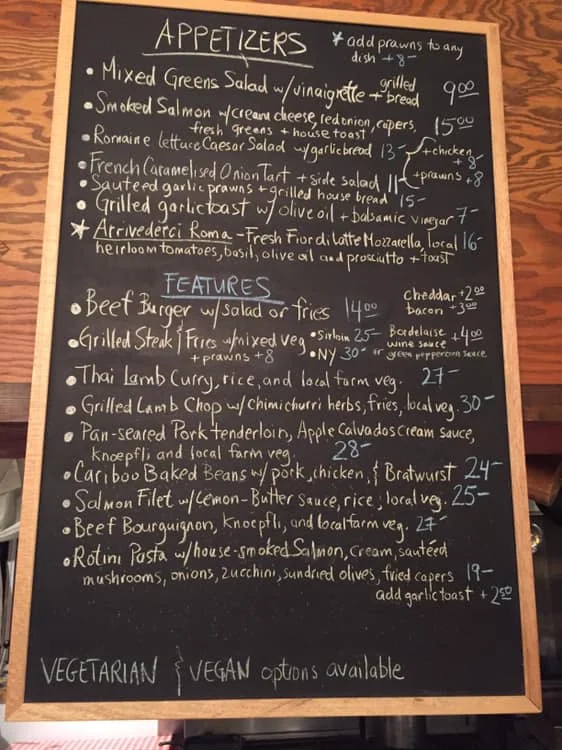 APPETIZERS
* add prawns to any
dish + 8-
• Mixed Greens Salad w/ vinaigrette + grilled bread 9.00
• Smoked Salmon w/cream cheese, red onion, capers,
fresh greens + house toast 15.00
• Romaine lettuce Caesar Salad w/ garlic bread 13-
+ chicken + 8-
+ prawns + 8
• French Caramelised Onion Tart + side salad 11-
• Sauteed garlic prawns + grilled house bread 15-
• Grilled garlic toast w/ olive oil + balsamic vinegar 7-
* Arrivederci Roma - Fresh Fior di Latte Mozzarella, local 16-
heirloom tomatoes, basil, olive oil and prosciutto + toast
FEATURES
• Beef Burger w/ salad or fries 14.00
Cheddar + 2.00
bacon + 3.00
• Grilled Steak & Fries w/ mixed veg • Sirloin 25-
+ prawns + 8 • NY 30-
Bordelaise wine sauce or green peppercorn sauce + 4.00
• Thai Lamb Curry, rice, and local farm veg. 27-
• Grilled Lamb Chop w/ Chimichurri herbs, fries, local veg. 30-
• Pan-seared Pork tenderloin, Apple Calvados Cream sauce,
knoepfli and local farm veg. 28-
• Cariboo Baked Beans w/ pork, chicken, & Bratwurst 24-
• Salmon Filet w/ Lemon-Butter Sauce, rice, local veg. 25-
• Beef Bourguignon, Knoepfli, and local farm veg. 27-
• Rotini Pasta w/ house-smoked Salmon, Cream, sautéed
mushrooms, onions, zucchini, sundried olives, fried capers 19-
add garlic toast + 2.50
VEGETARIAN & VEGAN options available